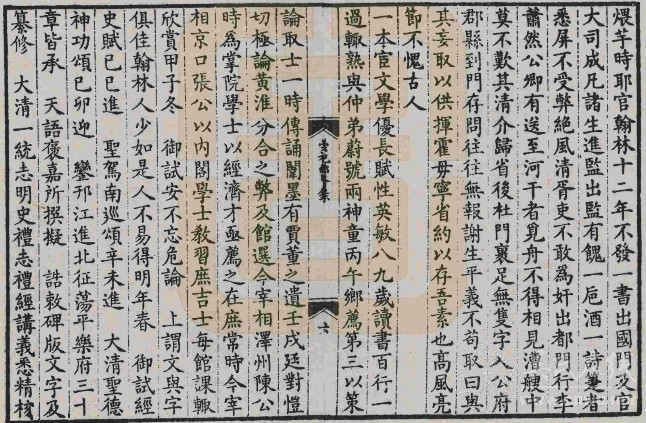 煨芋時耶官翰林十二年不發一書出國門及官
大司成凡諸生進監出監有餽一巵酒一詩箑者
悉屏不受弊絕風清胥吏不敢為奸出都門行李
蕭然公卿有送至河干者覓舟不得相見漕艘中
莫不歎其清介歸省後杜門裹足無隻字入公府
郡縣到門存問往往無報謝生平義不苟取曰與
其妄取以供揮霍毋寧省約以存吾素也高風亮
節不愧古人
一本宦文學優長賦性英敏八九歲讀書百行一
過輒熟與仲弟蔚號兩神童丙午鄉薦第三以策
六
論取士一時傳誦闈墨有賈董之遺壬戌廷對愷
切極論黃淮分合之弊及館選今宰相澤州陳公
時為掌院學士以經濟才亟薦之在庶常時今宰
相京口張公以內閣學士教習庶吉士每館課輒
欣賞甲子冬 御試安不忘危論 上謂文與字
俱佳翰林人少如是人不易得明年春 御試經
史賦已巳進 聖駕南巡頌辛未進 大清聖德
神功頌己卯迎 鑾邗江進北征蕩平樂府三十
章皆承 天語褒嘉所撰擬 誥敕碑版文字及
纂修 大清一統志明史禮志禮經講義悉精核